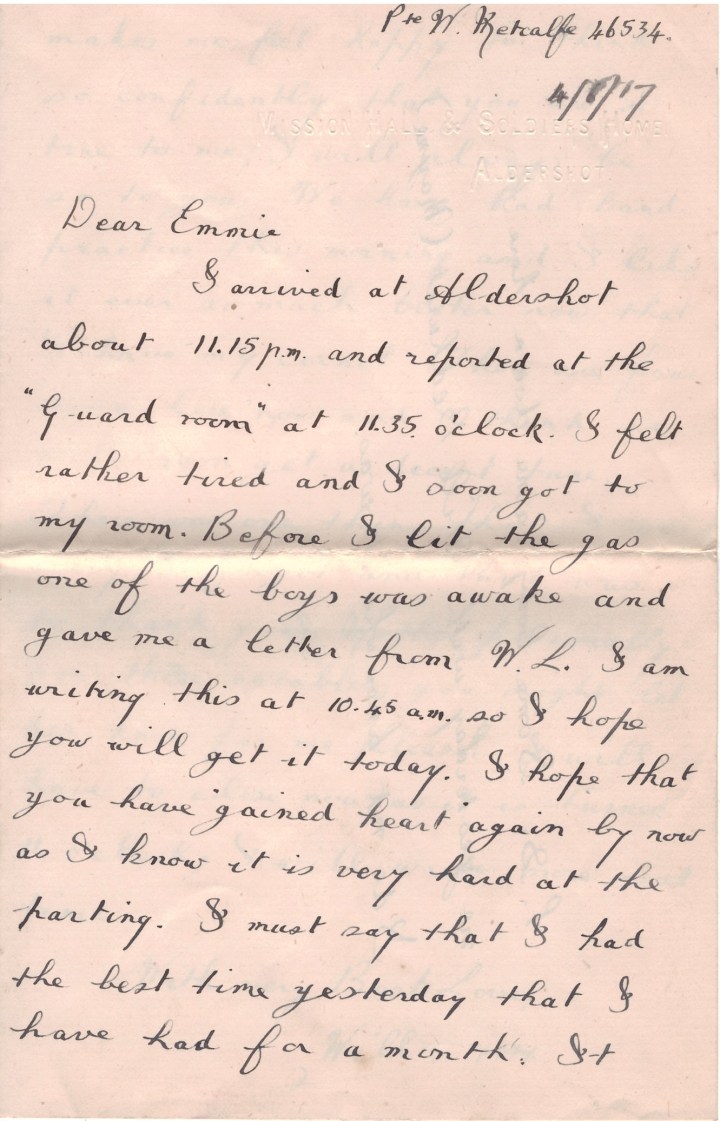 Pte W. Metcalfe 46534.
4/8/17
MISSION HALL & SOLDIERS HOME
ALDERSHOT.
Dear Emmie
I arrived at Aldershot
about 11.15 p.m. and reported at the
"Guard room" at 11.35 o'clock. I felt
rather tired and I soon got to
my room. Before I lit the gas
one of the boys was awake and
gave me a letter from W. L. I am
writing this at 10.45 a.m. so I hope
you will get it today. I hope that
you have "gained heart" again by now
as I know it is very hard at the
parting. I must say that I had
the best time yesterday that I
have had for a month. It